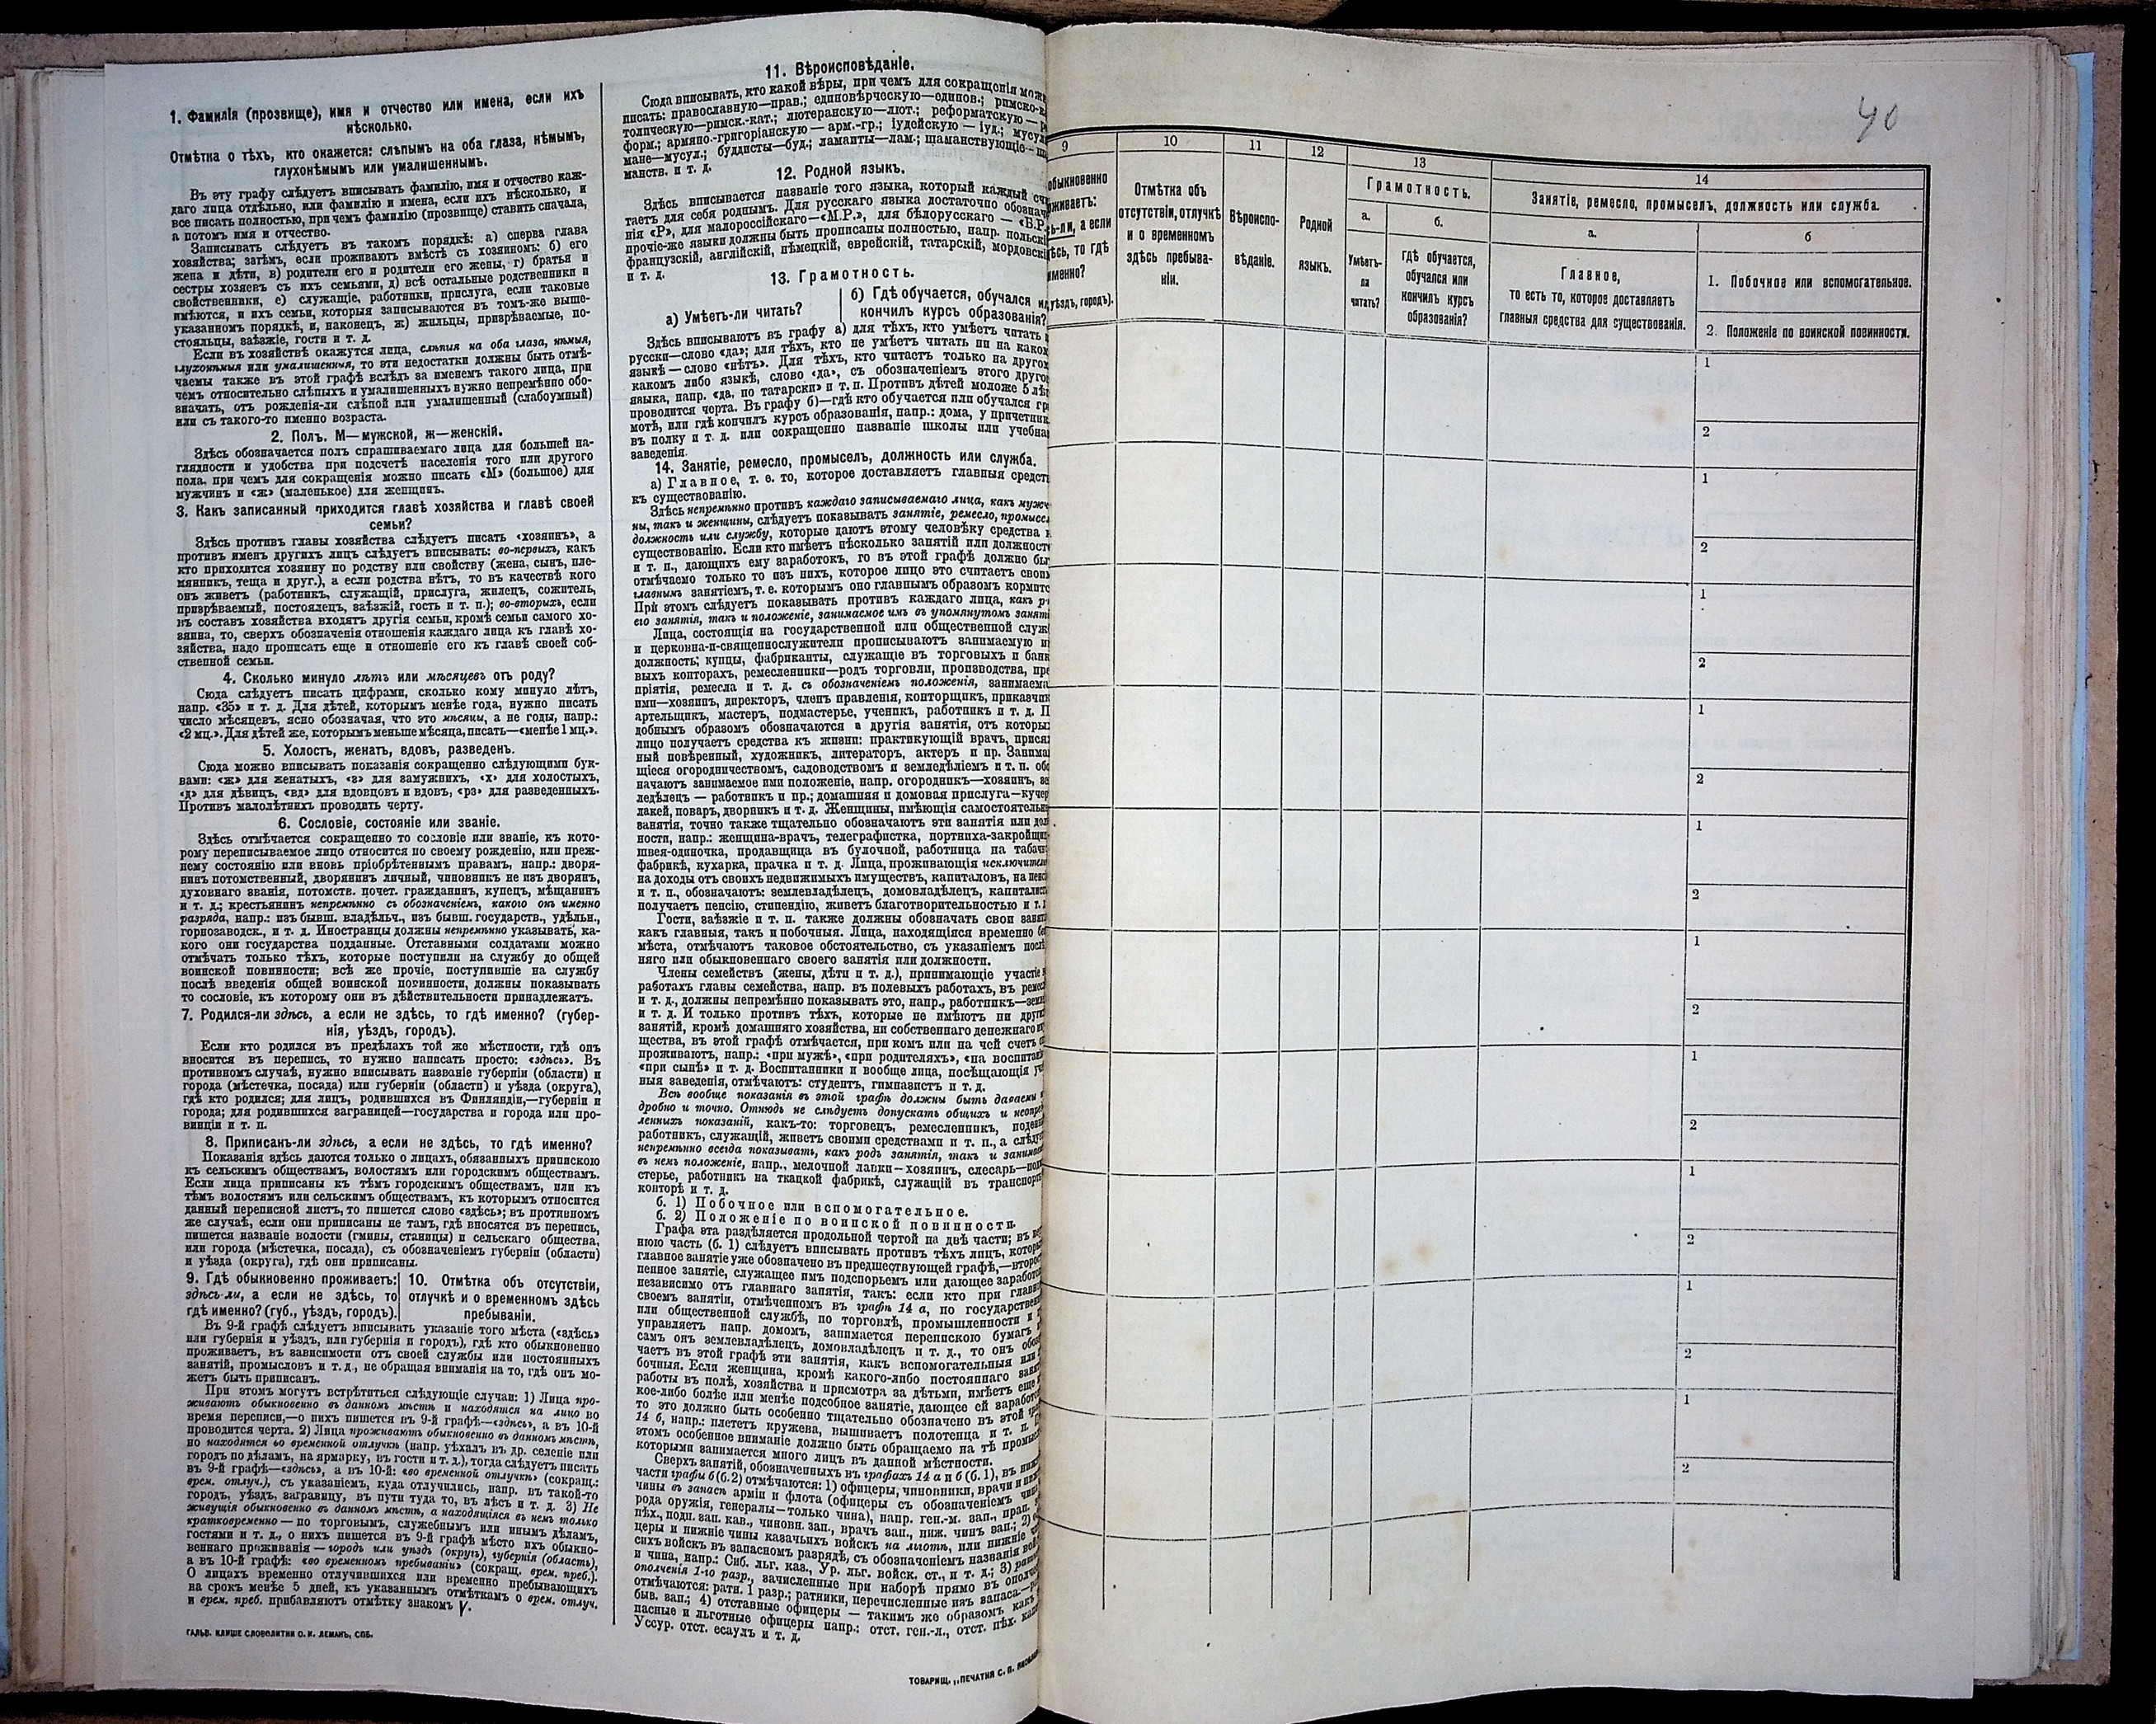 1. Фамилія (прозвище), имя и отчество или имена, если ихъ
нѣсколько.
Отмѣтка о тѣхъ, кто окажется: слѣпымъ на оба глаза, нѣмымъ,
глухонѣмымъ или умалишеннымъ.
Въ эту графу слѣдуетъ вписывать фамилію, имя и отчество каж-
даго лица отдѣльно, или фамилію и имена, если ихъ нѣсколько, и
все писать полностью, при чемъ фамилію (прозвище) ставить сначала,
а потомъ имя и отчество.
Записывать слѣдуетъ въ такомъ порядкѣ: а) сперва глава
хозяйства; затѣмъ, если проживаютъ вмѣстѣ съ хозяиномъ: б) его
жена и дѣти, в) родители его и родители его жены, г) братья и
сестры хозяевъ съ ихъ семьями, д) всѣ остальные родственники и
свойственники, е) служащіе, работники, прислуга, если таковые
имѣются, и ихъ семьи, которыя записываются въ томъ-же выше-
указанномъ порядкѣ, и, наконецъ, ж) жильцы, призрѣваемые, по-
стояльцы, заѣзжіе, гости и т. д.
Если въ хозяйствѣ окажутся лица, слѣпыя на оба глаза, нѣмыя,
глухонѣмыя или умалишенныя, то эти недостатки должны быть отмѣ-
чаемы также въ этой графѣ вслѣдъ за именемъ такого лица, при
чемъ относительно слѣпыхъ и умалишенныхъ нужно непремѣнно обо-
значать, отъ рожденія-ли слѣпой или умалишенный (слабоумный)
или съ такого-то именно возраста.
2. Полъ. М—мужской, ж—женскій.
Здѣсь обозначается полъ спрашиваемаго лица для большей на-
глядности и удобства при подсчетѣ населенія того или другого
пола, при чемъ для сокращенія можно писать «М» (большое) для
мужчинъ и «ж» (маленькое) для женщинъ.
3. Какъ записанный приходится главѣ хозяйства и главѣ своей
семьи?
Здѣсь противъ главы хозяйства слѣдуетъ писать «хозяинъ», а
противъ именъ другихъ лицъ слѣдуетъ вписывать: во-первыхъ, какъ
кто приходится хозяину по родству или свойству (жена, сынъ, пле-
мянникъ, теща и друг.), а если родства нѣтъ, то въ качествѣ кого
онъ живетъ (работникъ, служащій, прислуга, жилецъ, сожитель,
призрѣваемый, постоялецъ, заѣзжій, гость и т. п.); во-вторыхъ, если
въ составъ хозяйства входятъ другія семьи, кромѣ семьи самого хо-
зяина, то, сверхъ обозначенія отношенія каждаго лица къ главѣ хо-
зяйства, надо прописать еще и отношеніе его къ главѣ своей соб-
ственной семьи.
4. Сколько минуло лѣтъ или мѣсяцевъ отъ роду?
Сюда слѣдуетъ писать цифрами, сколько кому минуло лѣтъ,
напр. «35» и т. д. Для дѣтей, которымъ менѣе года, нужно писать
число мѣсяцевъ, ясно обозначая, что это мѣсяцы, а не годы, напр.:
«2 мц.». Для дѣтей же, которымъ меньше мѣсяца, писать—«менѣе 1 мц.».
5. Холостъ, женатъ, вдовъ, разведенъ.
Сюда можно вписывать показанія сокращенно слѣдующими бук-
вами: «ж» для женатыхъ, «з» для замужнихъ, «х» для холостыхъ,
«д» для дѣвицъ, «вд» для вдовцовъ и вдовъ, «рз» для разведенныхъ.
Противъ малолѣтнихъ проводить черту.
6. Сословіе, состояніе или званіе.
Здѣсь отмѣчается сокращенно то сословіе или званіе, къ кото-
рому переписываемое лицо относится по своему рожденію, или преж-
нему состоянію или вновь пріобрѣтеннымъ правамъ, напр.: дворя-
нинъ потомственный, дворянинъ личный, чиновникъ не изъ дворянъ,
духовнаго званія, потомств. почет. гражданинъ, купецъ, мѣщанинъ
и т. д.; крестьянинъ непремѣнно съ обозначеніемъ, какого онъ именно
разряда, напр.: изъ бывш. владѣльч., изъ бывш. государств., удѣльн.,
горнозаводск., и т. д. Иностранцы должны непремѣнно указывать, ка-
кого они государства подданные. Отставными солдатами можно
отмѣчать только тѣхъ, которые поступили на службу до общей
воинской повинности; всѣ же прочіе, поступившіе на службу
послѣ введенія общей воинской повинности, должны показывать
то сословіе, къ которому они въ дѣйствительности принадлежатъ.
7. Родился-ли здѣсь, а если не здѣсь, то гдѣ именно? (губер-
нія, уѣздъ, городъ).
Если кто родился въ предѣлахъ той же мѣстности, гдѣ онъ
вносится въ перепись, то нужно написать просто: «здѣсь». Въ
противномъ случаѣ, нужно вписывать названіе губерніи (области) и
города (мѣстечка, посада) или губерніи (области) и уѣзда (округа),
гдѣ кто родился; для лицъ, родившихся въ Финляндіи,—губерніи и
города; для родившихся заграницей—государства и города или про-
винціи и т. п.
8. Приписанъ-ли здѣсь, а если не здѣсь, то гдѣ именно?
Показанія здѣсь даются только о лицахъ, обязанныхъ припискою
къ сельскимъ обществамъ, волостямъ или городскимъ обществамъ.
Если лица приписаны къ тѣмъ городскимъ обществамъ, или къ
тѣмъ волостямъ или сельскимъ обществамъ, къ которымъ относится
данный переписной листъ, то пишется слово «здѣсь»; въ противномъ
же случаѣ, если они приписаны не тамъ, гдѣ вносятся въ перепись,
пишется названіе волости (гмины, станицы) и сельскаго общества,
или города (мѣстечка, посада), съ обозначеніемъ губерніи (области)
и уѣзда (округа), гдѣ они приписаны.
9. Гдѣ обыкновенно проживаетъ:
здѣсь-ли, а если не здѣсь, то
гдѣ именно? (губ., уѣздъ, городъ).
10. Отмѣтка объ отсутствіи,
отлучкѣ и о временномъ здѣсь
пребываніи.
Въ 9-й графѣ слѣдуетъ вписывать указаніе того мѣста («здѣсь»
или губернія и уѣздъ, или губернія и городъ), гдѣ кто обыкновенно
проживаетъ, въ зависимости отъ своей службы или постоянныхъ
занятій, промысловъ и т. д., не обращая вниманія на то, гдѣ онъ мо-
жетъ быть приписанъ.
При этомъ могутъ встрѣтиться слѣдующіе случаи: 1) Лица про-
живаютъ обыкновенно въ данномъ мѣстѣ и находятся на лицо во
время переписи,—о нихъ пишется въ 9-й графѣ—«здѣсь», а въ 10-й
проводится черта. 2) Лица проживаютъ обыкновенно въ данномъ мѣстѣ,
но находятся во временной отлучкѣ (напр. уѣхалъ въ др. селеніе или
городъ по дѣламъ, на ярмарку, въ гости и т. д.), тогда слѣдуетъ писать
въ 9-й графѣ—«здѣсь», а въ 10-й: «во временной отлучкѣ» (сокращ.:
врем. отлуч.), съ указаніемъ, куда отлучились, напр. въ такой-то
городъ, уѣздъ, заграницу, въ пути туда то, въ лѣсъ и т. д. 3) Не
живущія обыкновенно въ данномъ мѣстѣ, а находящіяся въ немъ только
кратковременно — по торговымъ, служебнымъ или инымъ дѣламъ,
гостями и т. д., о нихъ пишется въ 9-й графѣ мѣсто ихъ обыкно-
веннаго проживанія — городъ или уѣздъ (округъ), губернія (область),
а въ 10-й графѣ: «во временномъ пребываніи» (сокращ. врем. преб.).
О лицахъ временно отлучившихся или временно пребывающихъ
на срокъ менѣе 5 дней, къ указаннымъ отмѣткамъ о врем. отлуч.
и врем. преб. прибавляютъ отмѣтку знакомъ V.
ГАЛЬВ. КЛИШЕ СЛОВОЛИТНИ О. И. ЛЕМАНЪ, СПБ.
11. Вѣроисповѣданіе.
Сюда вписывать, кто какой вѣры, при чемъ для сокращенія можно
писать: православную—прав.; единовѣрческую—единов.; римско-ка
толическую—римск.-кат.; лютеранскую—лют.; реформатскую — ре
форм.; армяно.-григоріанскую — арм.-гр.; іудейскую — іуд.; мусуль
мане—мусул.; буддисты—буд.; ламаиты—лам.; шаманствующіе— ша
манств. и т. д.
12. Родной языкъ.
Здѣсь вписывается названіе того языка, который каждый счи
таетъ для себя роднымъ. Для русскаго языка достаточно обозначе
нія «Р», для малороссійскаго—«М.Р.», для бѣлорусскаго — «Б.Р.
прочіе-же языки должны быть прописаны полностью, напр. польскі
французскій, англійскій, нѣмецкій, еврейскій, татарскій, мордовскій
и т. д.
13. Грамотность.
а) Умѣетъ-ли читать?
б) Гдѣ обучается, обучался ил
кончилъ курсъ образованія?
Здѣсь вписываютъ въ графу а) для тѣхъ, кто умѣетъ читать п
русски—слово «да»; для тѣхъ, кто не умѣетъ читать ни на каком
языкѣ — слово «нѣтъ». Для тѣхъ, кто читаетъ только на другом
какомъ либо языкѣ, слово «да», съ обозначеніемъ этого другог
языка, напр. «да, по татарски» и т. п. Противъ дѣтей моложе 5 лѣт
проводится черта. Въ графу б)—гдѣ кто обучается или обучался гра
мотѣ, или гдѣ кончилъ курсъ образованія, напр.: дома, у причетник
въ полку и т. д. или сокращенно названіе школы или учебна
заведенія.
14. Занятіе, ремесло, промыселъ, должность или служба.
а) Главное, т. е. то, которое доставляетъ главныя средст
къ существованію.
Здѣсь непремѣнно противъ каждаго записываемаго лица, какъ мужч
ны, такъ и женщины, слѣдуетъ показывать занятіе, ремесло, промысел
должность или службу, которые даютъ этому человѣку средства к
существованію. Если кто имѣетъ нѣсколько занятій или должносте
и т. п., дающихъ ему заработокъ, то въ этой графѣ должно быт
отмѣчаемо только то изъ нихъ, которое лицо это считаетъ своим
главнымъ занятіемъ, т. е. которымъ оно главнымъ образомъ кормитс
При этомъ слѣдуетъ показывать противъ каждаго лица, какъ р
его занятія, такъ и положеніе, занимаемое имъ въ упомянутомъ заняті
Лица, состоящія на государственной или общественной служ
и церковна-и-священнослужители прописываютъ занимаемую и
должность; купцы, фабриканты, служащіе въ торговыхъ и банк
выхъ конторахъ, ремесленники—родъ торговли, производства, пре
пріятія, ремесла и т. д. съ обозначеніемъ положенія, занимаема
ими—хозяинъ, директоръ, членъ правленія, конторщикъ, приказчик
артельщикъ, мастеръ, подмастерье, ученикъ, работникъ и т. д. П
добнымъ образомъ обозначаются и другія занятія, отъ которых
лицо получаетъ средства къ жизни: практикующій врачъ, присяж
ный повѣренный, художникъ, литераторъ, актеръ и пр. Занима
щіеся огородничествомъ, садоводствомъ и земледѣліемъ и т. п. обо
начаютъ занимаемое ими положеніе, напр. огородникъ—хозяинъ, зе
ледѣлецъ — работникъ и пр.; домашняя и домовая прислуга—кучер
лакей, поваръ, дворникъ и т. д. Женщины, имѣющія самостоятельны
занятія, точно также тщательно обозначаютъ эти занятія или дол
ности, напр.: женщина-врачъ, телеграфистка, портниха-закройщи
швея-одиночка, продавщица въ булочной, работница на табачн
фабрикѣ, кухарка, прачка и т. д. Лица, проживающія исключител
на доходы отъ своихъ недвижимыхъ имуществъ, капиталовъ, на пенсі
и т. п., обозначаютъ: землевладѣлецъ, домовладѣлецъ, капиталист
получаетъ пенсію, стипендію, живетъ благотворительностью и т. п
Гости, заѣзжіе и т. п. также должны обозначать свои занят
какъ главныя, такъ и побочныя. Лица, находящіяся временно бе
мѣста, отмѣчаютъ таковое обстоятельство, съ указаніемъ послѣ
няго или обыкновеннаго своего занятія или должности.
Члены семействъ (жены, дѣти и т. д.), принимающіе участіе в
работахъ главы семейства, напр. въ полевыхъ работахъ, въ ремес
и т. д., должны непремѣнно показывать это, напр., работникъ—земл
и т. д. И только противъ тѣхъ, которые не имѣютъ ни други
занятій, кромѣ домашняго хозяйства, ни собственнаго денежнаго и
щества, въ этой графѣ отмѣчается, при комъ или на чей счетъ о
проживаютъ, напр.: «при мужѣ», «при родителяхъ», «на воспитані
«при сынѣ» и т. д. Воспитанники и вообще лица, посѣщающія уче
ныя заведенія, отмѣчаютъ: студентъ, гимназистъ и т. д.
Всѣ вообще показанія въ этой графѣ должны быть даваемы п
дробно и точно. Отнюдь не слѣдуетъ допускать общихъ и неопре
ленныхъ показаній, какъ-то: торговецъ, ремесленникъ, поденщ
работникъ, служащій, живетъ своими средствами и т. п., а слѣду
непремѣнно всегда показывать, какъ родъ занятія, такъ и занимаем
въ немъ положеніе, напр., мелочной лавки—хозяинъ, слесарь—подм
стерье, работникъ на ткацкой фабрикѣ, служащій въ транспортн
конторѣ и т. д.
б. 1) Побочное или вспомогательное.
б. 2) Положеніе по воинской повинности.
Графа эта раздѣляется продольной чертой на двѣ части; въ вер
нюю часть (б. 1) слѣдуетъ вписывать противъ тѣхъ лицъ, которы
главное занятіе уже обозначено въ предшествующей графѣ,—второс
пенное занятіе, служащее имъ подспорьемъ или дающее заработо
независимо отъ главнаго занятія, такъ: если кто при главно
своемъ занятіи, отмѣченномъ въ графѣ 14 а, по государствен
или общественной службѣ, по торговлѣ, промышленности и п
управляетъ напр. домомъ, занимается перепискою бумагъ
самъ онъ землевладѣлецъ, домовладѣлецъ и т. д., то онъ обозн
чаетъ въ этой графѣ эти занятія, какъ вспомогательныя или
бочныя. Если женщина, кромѣ какого-либо постояннаго занят
работы въ полѣ, хозяйства и присмотра за дѣтьми, имѣетъ еще
кое-либо болѣе или менѣе подсобное занятіе, дающее ей заработо
то это должно быть особенно тщательно обозначено въ этой гра
14 б, напр.: плететъ кружева, вышиваетъ полотенца и т. п. П
этомъ особенное вниманіе должно быть обращаемо на тѣ промыс
которыми занимается много лицъ въ данной мѣстности.
Сверхъ занятій, обозначенныхъ въ графахъ 14 а и б (б. 1), въ ниж
части графы б (б.2) отмѣчаются: 1) офицеры, чиновники, врачи и ниж
чины въ запасѣ арміи и флота (офицеры съ обозначеніемъ чина
рода оружія, генералы—только чина), напр. ген.-м. зап., прап. з
пѣх., подп. зап. кав., чиновн. зап., врачъ зап., ниж. чинъ зап.; 2) о
церы и нижніе чины казачьихъ войскъ на льготѣ, или нижніе ч
сихъ войскъ въ запасномъ разрядѣ, съ обозначеніемъ названія вой
и чина, напр.: Сиб. льг. каз., Ур. льг. войск. ст., и т. д.; 3) ратн
ополченія 1-го разр., зачисленные при наборѣ прямо въ ополче
отмѣчаются: ратн. 1 разр.; ратники, перечисленные изъ запаса:—р
быв. зап.; 4) отставные офицеры — такимъ же образомъ какъ
пасные и льготные офицеры напр.: отст. ген.-л., отст. пѣх. кап
Уссур. отст. есаулъ и т. д.
ТОВАРИЩ. „ПЕЧАТНЯ С. П. ЯКОВЛЕ
40
9
10
11
12
13
14
обыкновенно
живаетъ:
ь-ли, а если
ѣсь, то гдѣ
именно?
уѣздъ, городъ).
Отмѣтка объ
отсутствіи, отлучкѣ
и о временномъ
здѣсь пребыва-
ніи.
Вѣроиспо-
вѣданіе.
Родной
языкъ.
Грамотность.
а.
Умѣетъ-
ли
читать?
б.
гдѣ обучается,
обучался или
кончилъ курсъ
образованія?
Занятіе, ремесло, промыселъ, должность или служба.
а.
Главное,
то есть то, которое доставляетъ
главныя средства для существованія.
б
1. Побочное или вспомогательное.
2. Положеніе по воинской повинности.
1
2
1
2
1
2
1
2
1
2
1
2
1
2
1
2
1
2
1
2